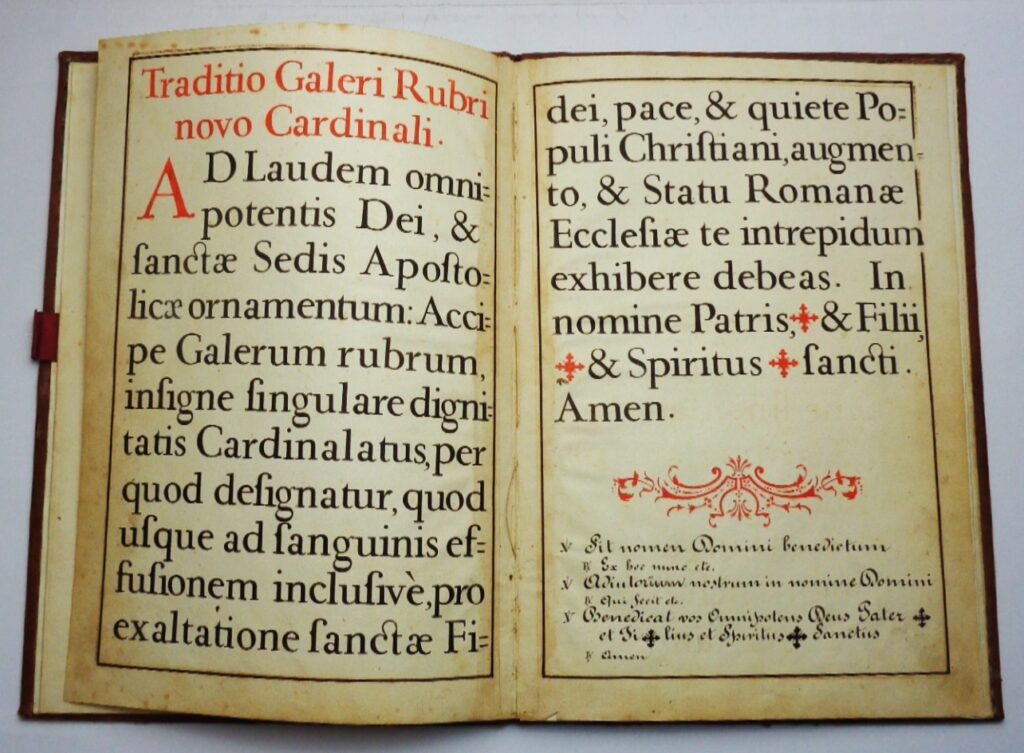 Traditio Galeri Rubri
novo Cardinali.
AD Laudem omni=
potentis Dei, &
ſanctæ Sedis Apoſto=
licæ ornamentum: Acci=
pe Galerum rubrum,
inſigne ſingulare digni=
tatis Cardinalatus, per
quod deſignatur, quod
uſque ad ſanguinis ef=
fuſionem incluſivè, pro
exaltatione ſanctæ Fi=
dei, pace, & quiete Po=
puli Chriſtiani, augmen=
to, & Statu Romanæ
Eccleſiæ te intrepidum
exhibere debeas. In
nomine Patris, ✠ & Filii,
✠ & Spiritus ✠ ſancti.
Amen.
℣ Sit nomen Domini benedictum
℟ Ex hoc nunc etc.
℣ Adiutorium nostrum in nomine Domini
℟ Qui fecit etc.
℣ Benedicat vos Omnipotens Deus Pater ✠
et Fi✠lius et Spiritus ✠ Sanctus
℟ Amen